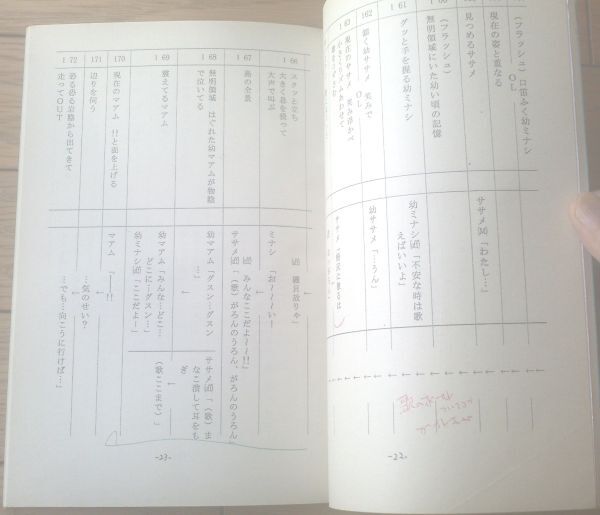 （フラッシュ）口笛ふく幼ミナシ
OL
現在の姿と重なる
見つめるササメ
ササメ[M]「わたし…」
（フラッシュ）
無明領域にいた幼い頃の記憶
161
グッと手を握る幼ミナシ
幼ミナシ[回]「不安な時は歌
えばいいよ」
162
頷く幼ササメ 笑みで
OL
幼ササメ「…うん」
163
現在のササメ 笑み浮かべ
-22-
166
スクッと立ち
大きく息を吸って
大声で叫ぶ
ミナシ
「お～～～い！
167
島の全景
[回] みんなここだよ～!!」
ササメ[回]「（歌）がろんのうろん、がろんのうろん
168
無明領域 はぐれた幼マアムが物陰
で泣いてる
幼マアム「グスン…グスン
…」
ササメ[回]「（歌）ま
なこ潰して耳をも
ぎ
169
震えてるマアム
幼マアム「みんな…どこ…
どこに…グスン…」
幼ミナシ[回]「ここだよー」
（歌ここまで）」
170
現在のマアム !!と面を上げる
マアム 「――!!
171
辺りを伺う
…気のせい？
172
恐る恐る岩陰から出てきて
走ってOUT
…でも…向こうに行けば…」
-23-